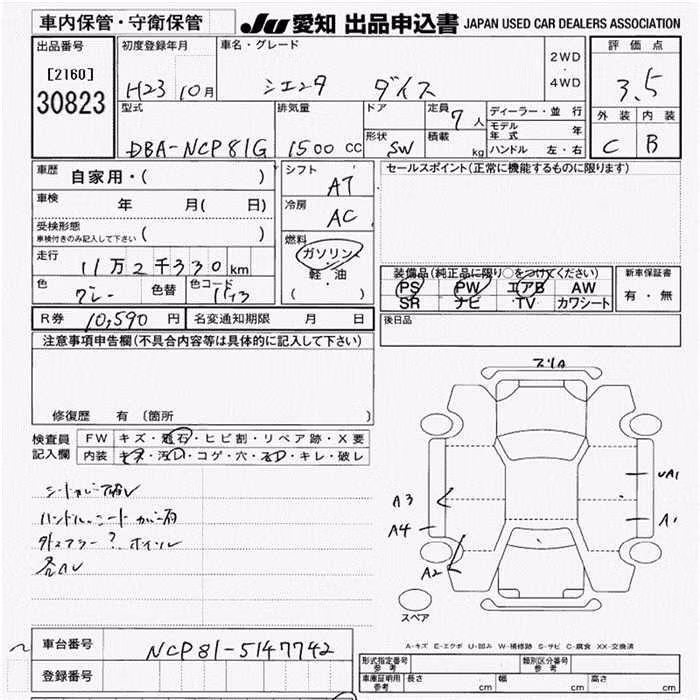 車内保管・守衛保管
JU 愛知 出品申込書 JAPAN USED CAR DEALERS ASSOCIATION
出品番号
[2160]
30823
初度登録年月
H23 10月
車名・グレード
シエンタ ダイス
2WD
・
4WD
評価点
3.5
外装 内装
C B
型式
DBA-NCP81G
排気量
1500 CC
ドア
形状
SW
定員
7人
積載
kg
ディーラー・並行
モデル年式 年
ハンドル 左・右
車歴
自家用・( )
車検
年 月( 日)
受検形態
車検付きのみ記入して下さい ( )
走行
11万2千330km
色
グレー
色替
色コード
シフト
AT
冷房
AC
燃料
ガソリン
・
軽・油
( )
セールスポイント(正常に機能するものに限ります)
装備品(純正品に限り○をつけてください)
PS PW エアB AW
SR ナビ TV カワシート
新車保証書
有・無
R券 10,590円
名変通知期限 月 日
後日品
注意事項申告欄(不具合内容等は具体的に記入して下さい)
修復歴 有 (箇所 )
検査員記入欄
FW キズ・飛石・ヒビ割・リペア跡・X要
内装 キズ・汚レ・コゲ・穴・スレ・キレ・破レ
A3
A4
A2
UA1
A1
スペア
A-キズ E-エクボ U-凹み W-補修跡 S-サビ C-腐食 XX-交換済
車台番号
NCP81-5147742
登録番号
形式指定番号 参考
類別区分番号 参考
車庫証明用 参考
長さ cm
幅 cm
高さ cm